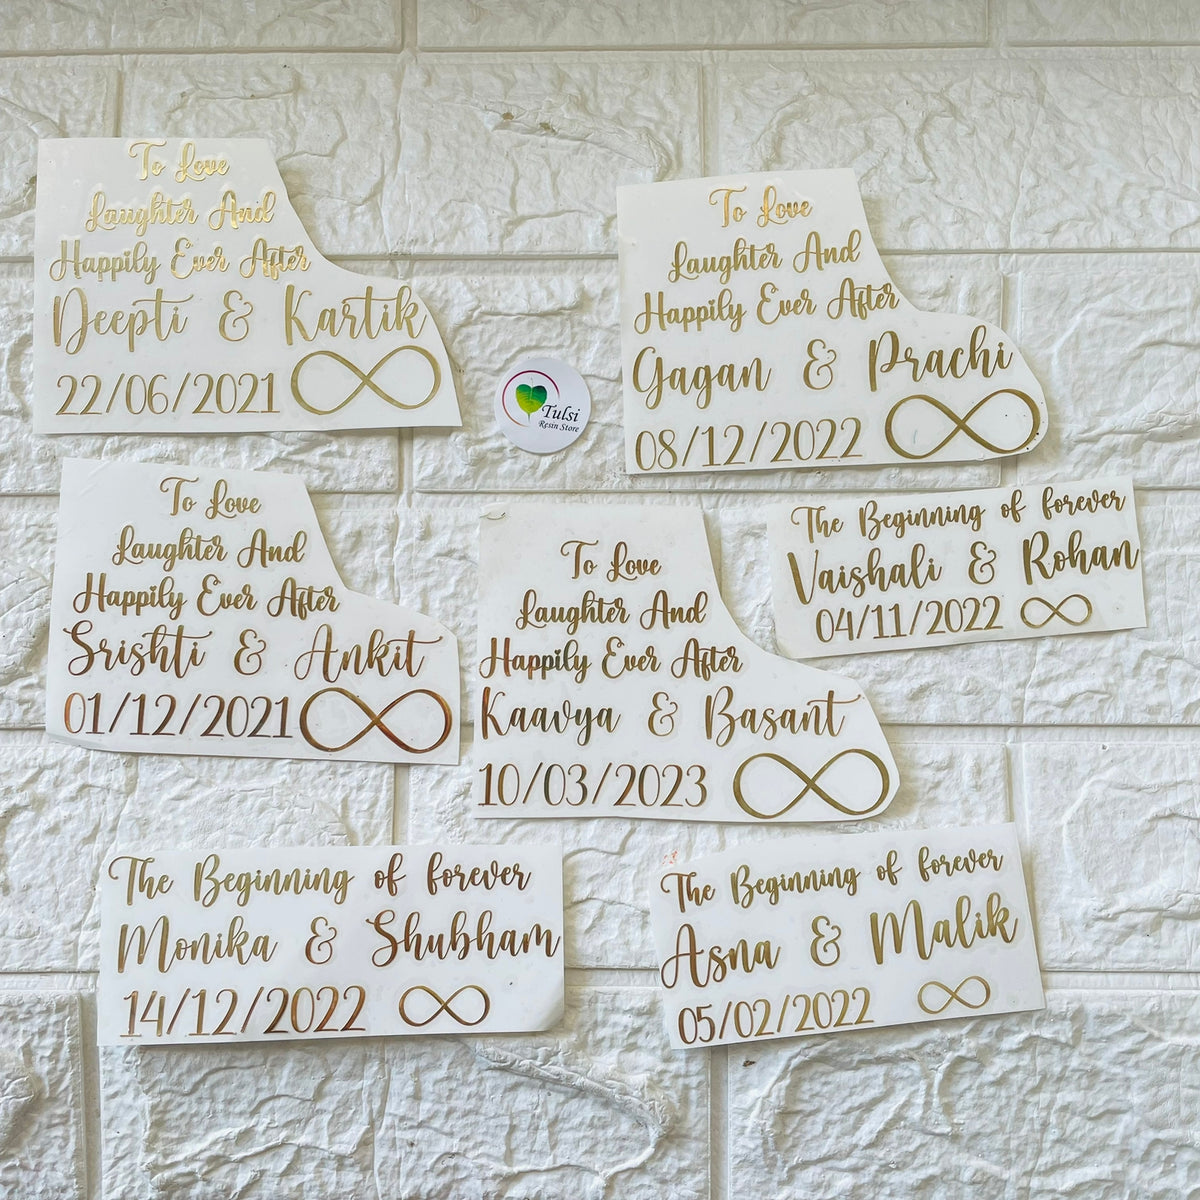 To Love
Laughter And
Happily Ever After
Deepti & Kartik
22/06/2021
To Love
Laughter And
Happily Ever After
Gagan & Prachi
08/12/2022
Tulsi
Resin Store
To Love
Laughter And
Happily Ever After
Srishti & Ankit
01/12/2021
To Love
Laughter And
Happily Ever After
Kaavya & Basant
10/03/2023
The Beginning of forever
Vaishali & Rohan
04/11/2022
The Beginning of forever
Monika & Shubham
14/12/2022
The Beginning of forever
Asna & Malik
05/02/2022